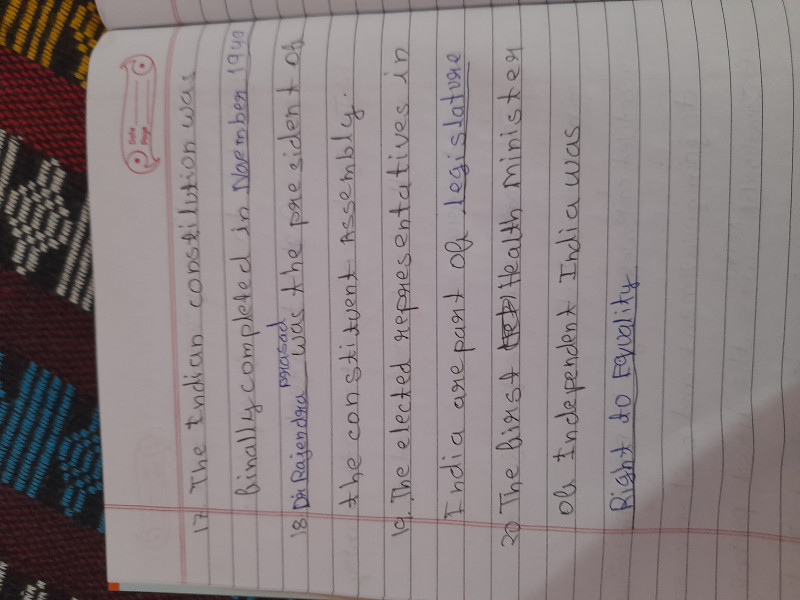 Date
Page
17. The Indian constitution was
finally completed in Noember 1940
18. Dr Rajendra prasad was the president of
the constituent Assembly.
19. The elected representatives in
India are part of legislature
20 The first Health minister
of Independent India was
Right to Equality